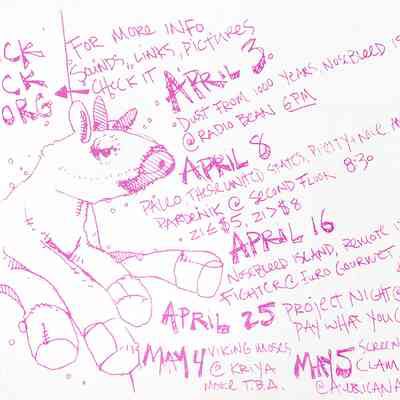 CK
CK
ORG
FOR MORE INFO
SOUNDS, LINKS, PICTURES
CHECK IT
APRIL 3
DUST FROM 1000 YEARS, NOSEBLEED IS
@ RADIO BEAN 6PM
APRIL 8
THESE UNITED STATES,
@ SECOND FLOOR 8:30
21≤ $5, 21> $8
APRIL 16
NOSEBLEED ISLAND, REMOTE
FIGHTER @ EURO GOURMET
APRIL 25 PROJECT NIGHT @
PAY WHAT YOU C
MAY 4 VIKING MOSES
@ KRIYA
MORE T.B.A.
MAY 5 SCREEN
CLAM
@ AMERICANA